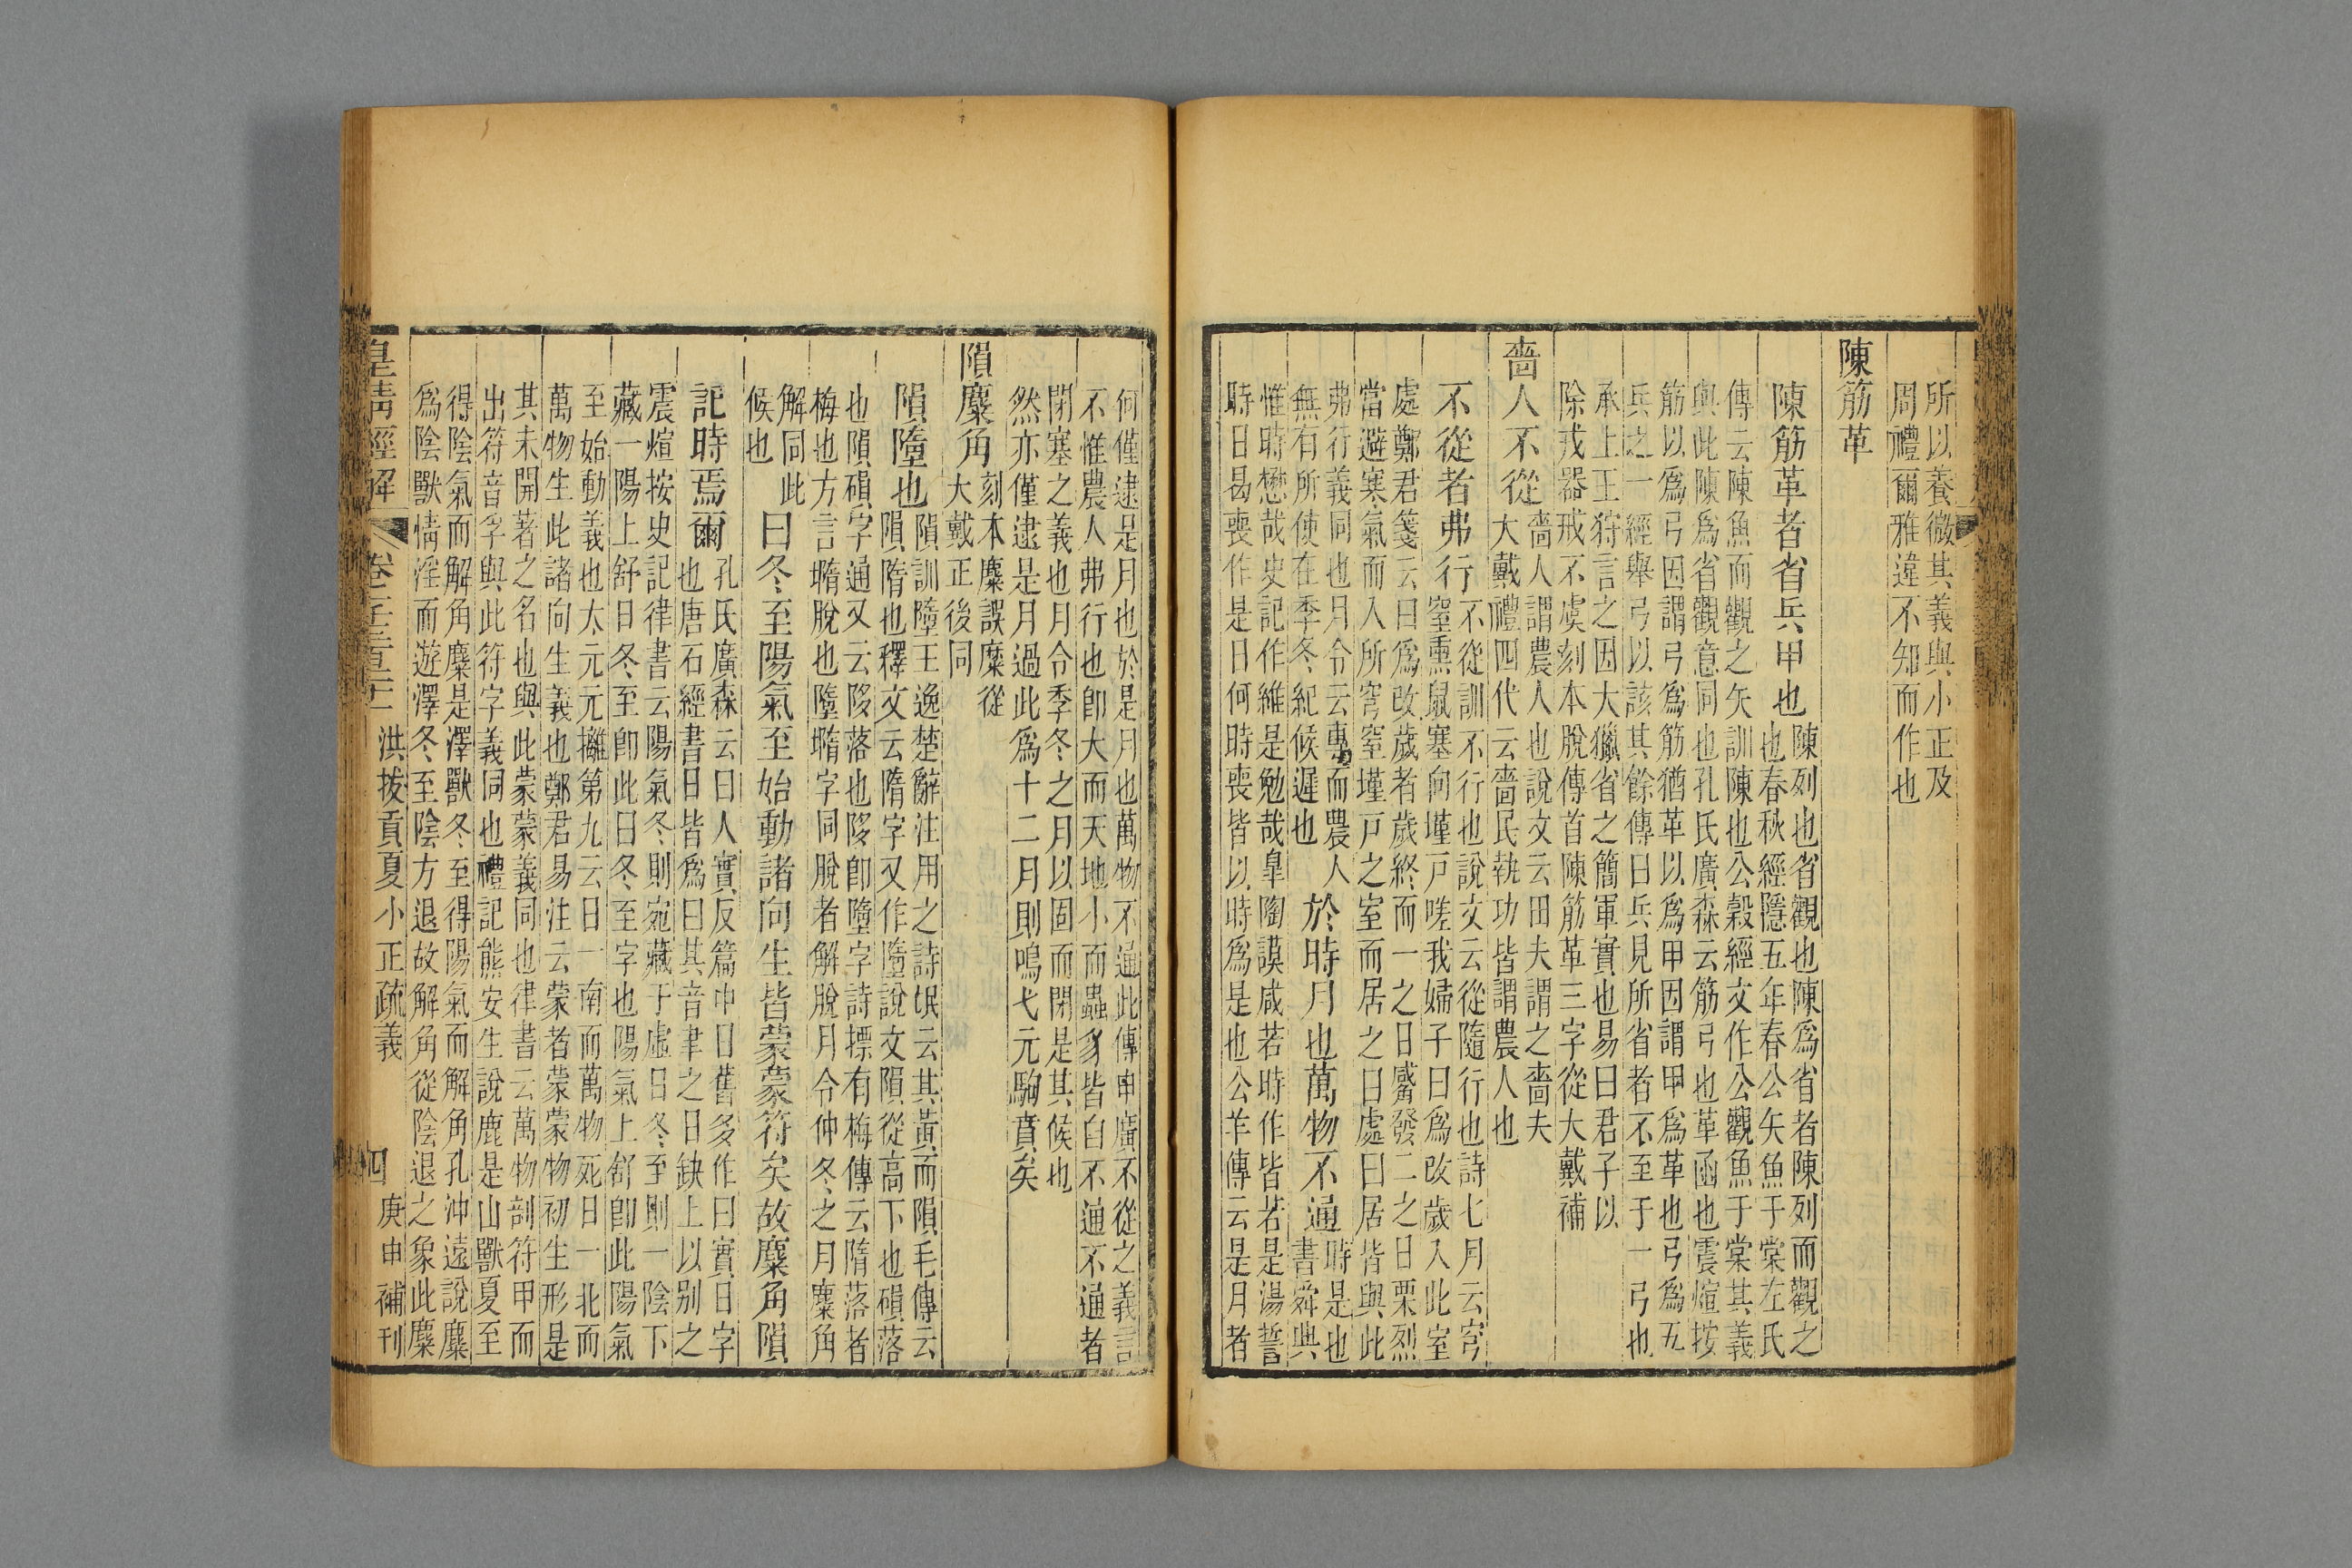 所以養微其義與小正及
周禮爾雅違不知而作也
陳筋革
陳筋革者省兵甲也陳列也省觀也陳爲省者陳列而觀之
也春秋經隱五年春公矢魚于棠左氏
傳云陳魚而觀之矢訓陳也公穀經文作公觀魚于棠其義
與此陳爲省觀意同也孔氏廣森云筋弓也革函也震煊按
筋以爲弓因謂弓爲筋猶革以爲甲因謂甲爲革也弓爲五
兵之一經舉弓以該其餘傳曰兵見所省者不至于一弓也
承上王狩言之因大獵省之簡軍實也易曰君子以
除戎器戒不虞刻本脫傳首陳筋革三字從大戴補
嗇人不從嗇人謂農人也說文云田夫謂之嗇夫
大戴禮四代云嗇民執功皆謂農人也
不從者弗行不從訓不行也說文云從隨行也詩七月云穹
窒熏鼠塞向墐戸嗟我婦子曰爲改歲入此室
處鄭君箋云曰爲改歲者歲終而一之日觱發二之日栗烈
當避寒氣而入所穹窒墐戸之室而居之曰處曰居皆與此
弗行義同也月令云專而農人
無有所使在季冬紀候遲也
於時月也萬物不通時是也
書舜典
惟時懋哉史記作維是勉哉皐陶謨咸若時作皆若是湯誓
時日曷喪作是日何時喪皆以時爲是也公羊傳云是月者
何僅逮是月也於是月也萬物不通此傳申廣不從之義言
不惟農人弗行也卽大而天地小而蟲豸皆自不通不通者
閉塞之義也月令季冬之月以固而閉是其候也
然亦僅逮是月過此爲十二月則鳴弋元駒賁矣
隕麋角刻本麋誤糜從
大戴正後同
隕墮也隕訓墮王逸楚辭注用之詩氓云其黃而隕毛傳云
隕隋也釋文云隋字又作墮說文隕從高下也磒落
也隕磒字通又云陊落也陊卽墮字詩摽有梅傳云隋落者
梅也方言㙐脫也墮㙐字同脫者解脫月令仲冬之月麋角
解同此
候也
曰冬至陽氣至始動諸向生皆蒙蒙符矣故麋角隕
記時焉爾孔氏廣森云曰人實反篇中日舊多作曰實日字
也唐石經書日皆爲曰其音聿之日缺上以別之
震煊按史記律書云陽氣冬則宛藏于虛日冬至則一陰下
藏一陽上舒日冬至卽此日冬至字也陽氣上舒卽此陽氣
至始動義也太元元攡第九云日一南而萬物死日一北而
萬物生此諸向生義也鄭君易注云蒙者蒙蒙物初生形是
其未開著之名也與此蒙蒙義同也律書云萬物剖符甲而
出符音孚與此符字義同也禮記熊安生說鹿是山獸夏至
得陰氣而解角麋是澤獸冬至得陽氣而解角孔沖遠說麋
爲陰獸情淫而遊澤冬至陰方退故解角從陰退之象此麋
皇淸經解 洪拔貢夏小正疏義 四 庚申補刊